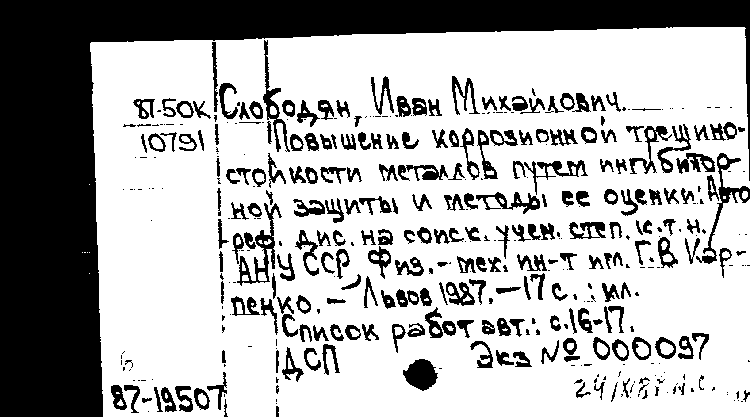 87-50К Слободян, Иван Михайлович.
10791 Повышение коррозионной трещино-
стойкости металлов путем ингибитор-
ной защиты и методы ее оценки: Авто
реф. дис. на соиск. учен. степ. к.т.н.
АН УССР, Физ.-мех. ин-т им. Г.В. Кар-
пенко. - Львов 1987. - 17 с. : ил.
Список работ авт.: с.16-17.
б ДСП Экз № 000097
87-19507